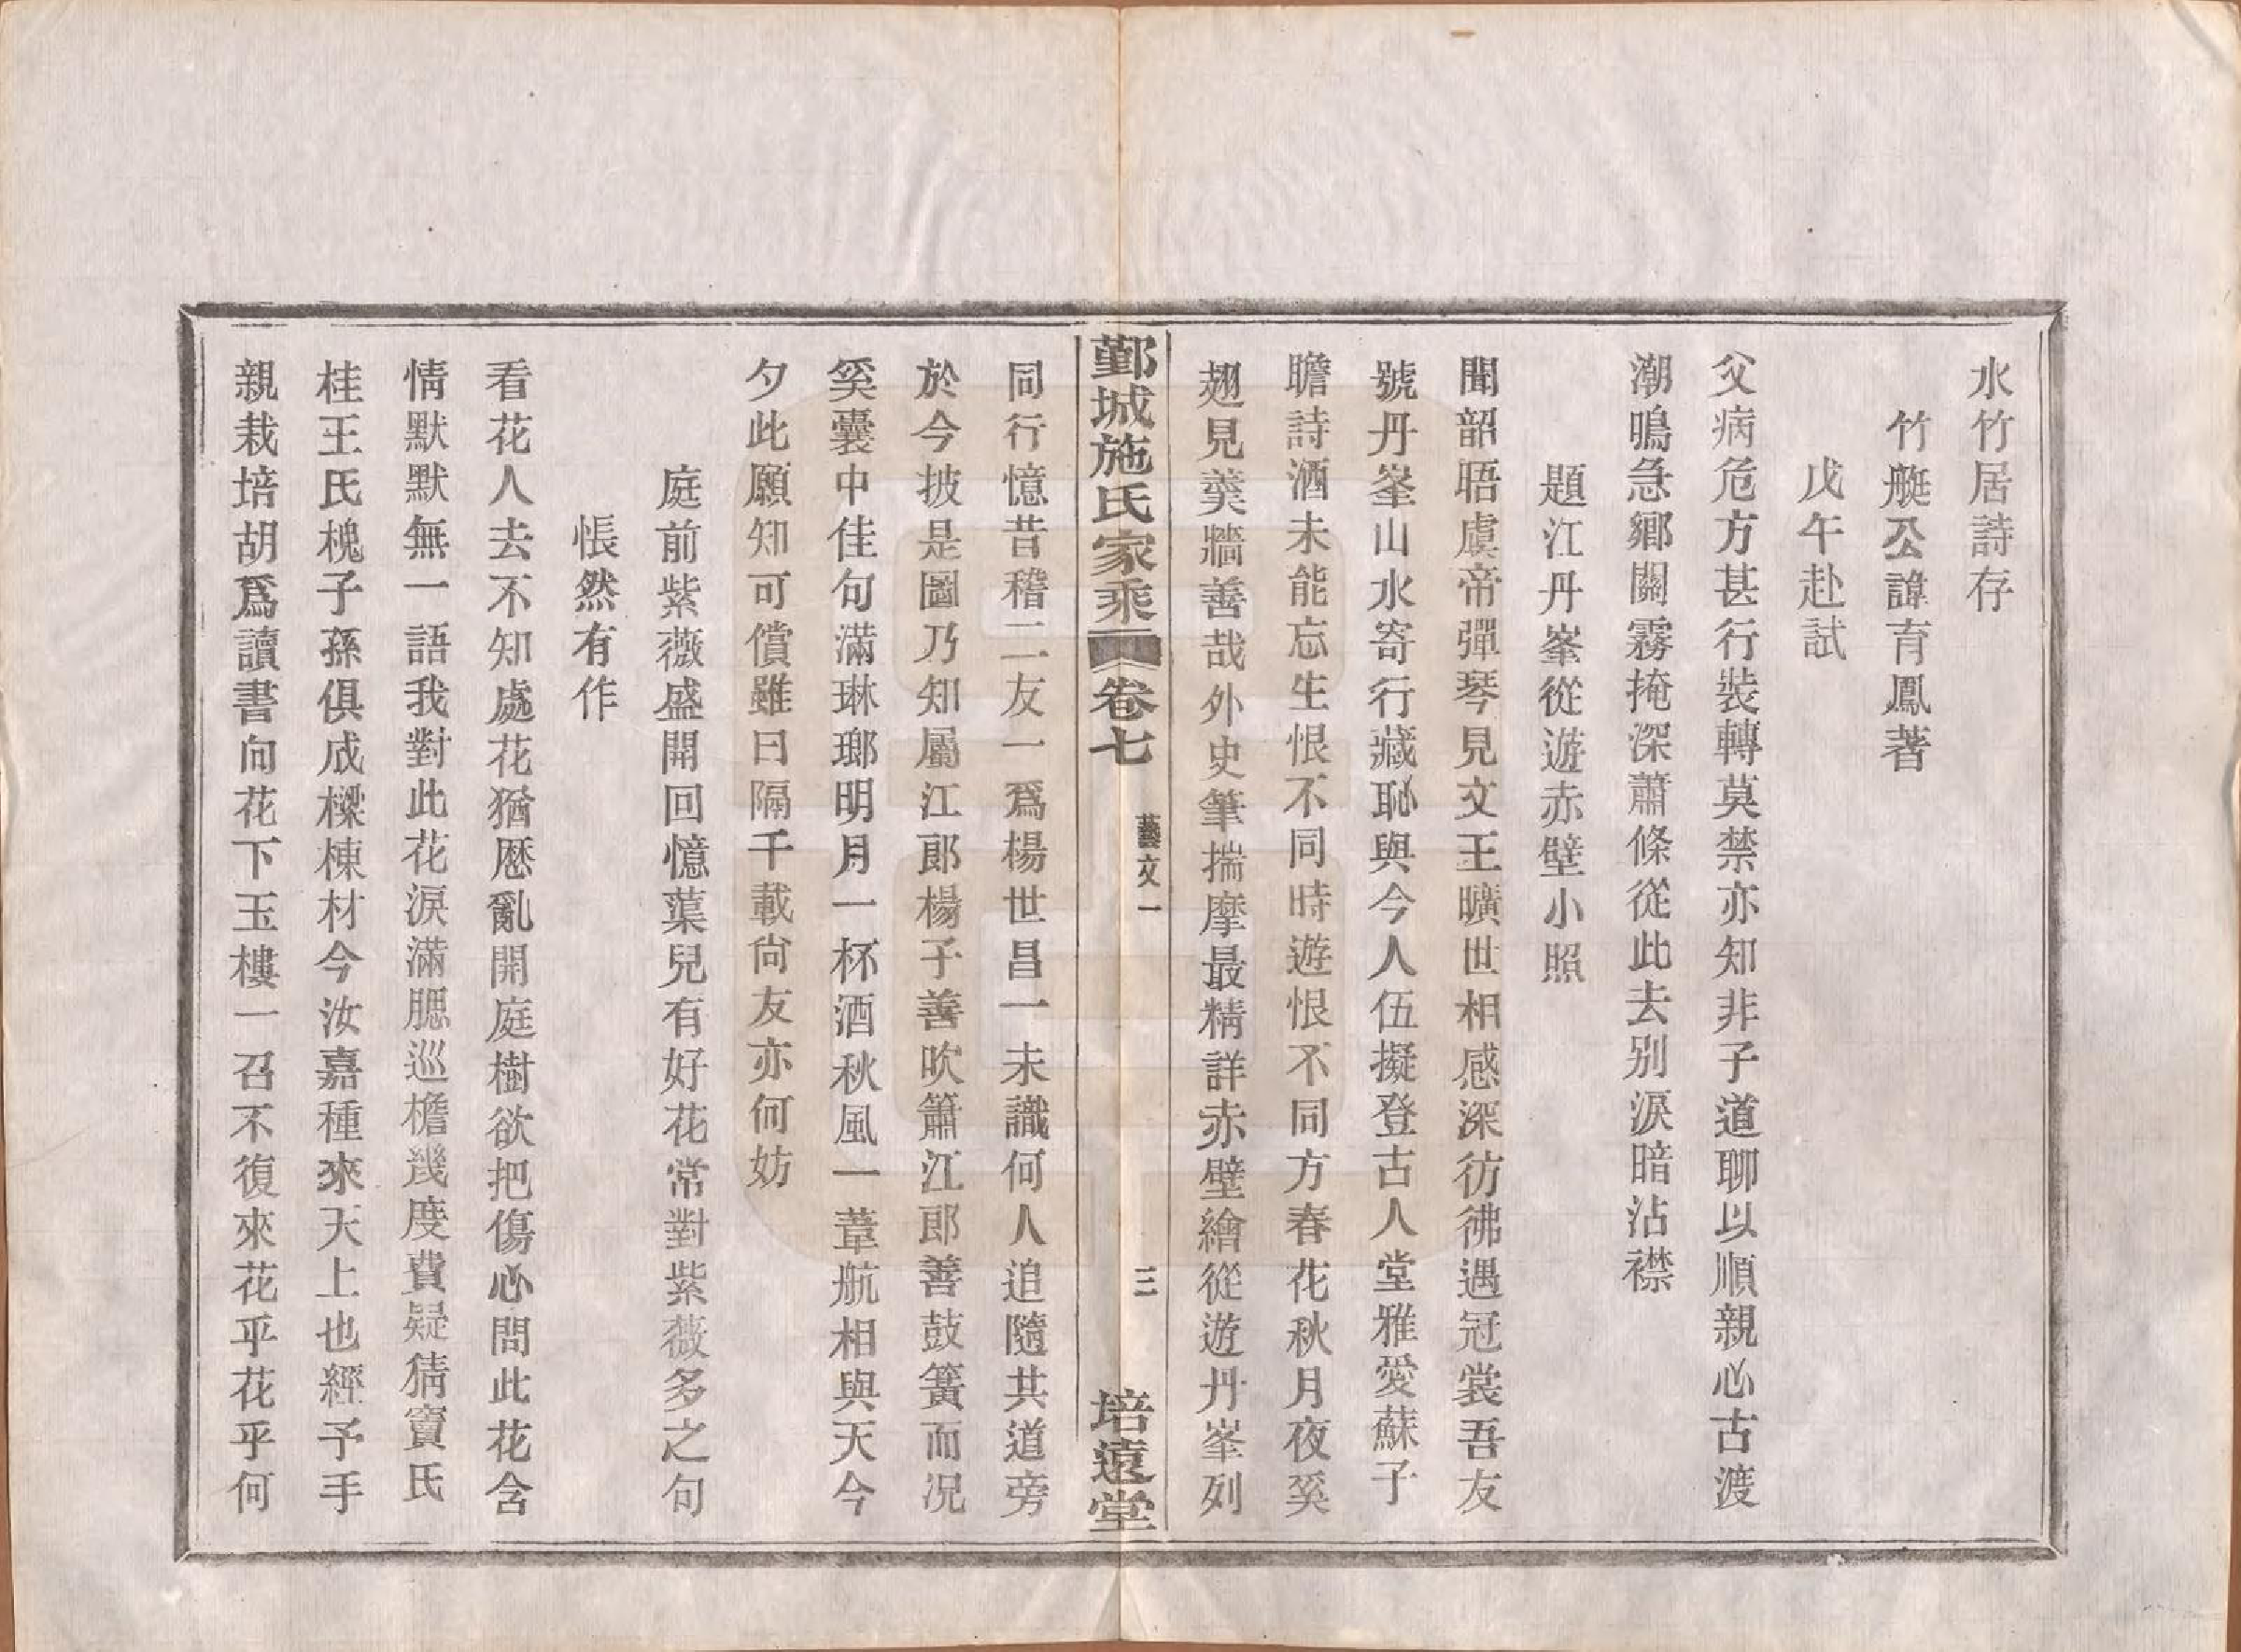 水竹居詩存
竹艇公諱育鳳著
戊午赴試
父病危方甚行裝轉莫禁亦知非子道聊以順親心古渡
潮鳴急鄉關霧掩深蕭條從此去别淚暗沾襟
題江丹峯從遊赤壁小照
聞韶晤虞帝彈琴見文王曠世相感深彷彿遇冠裳吾友
號丹峯山水寄行藏恥與今人伍擬登古人堂雅愛蘇子
瞻詩酒未能忘生恨不同時遊恨不同方春花秋月夜奚
翅見羹牆善哉外史筆揣摩最精詳赤壁繪從遊丹峯列
鄞城施氏家乘
卷七
藝文一
三
培遠堂
同行憶昔稽二友一爲楊世昌一未識何人追隨共道旁
於今披是圖乃知屬江郎楊子善吹簫江郎善鼓簧而况
奚囊中佳句滿琳瑯明月一杯酒秋風一葦航相與天今
夕此願知可償雖曰隔千載尙友亦何妨
庭前紫薇盛開回憶葉兒有好花常對紫薇多之句
悵然有作
看花人去不知處花猶歷亂開庭樹欲把傷心問此花含
情默默無一語我對此花淚滿腮巡檐幾度費疑猜竇氏
桂王氏槐子孫俱成樑棟材今汝嘉種來天上也經予手
親栽培胡爲讀書向花下玉樓一召不復來花乎花乎何